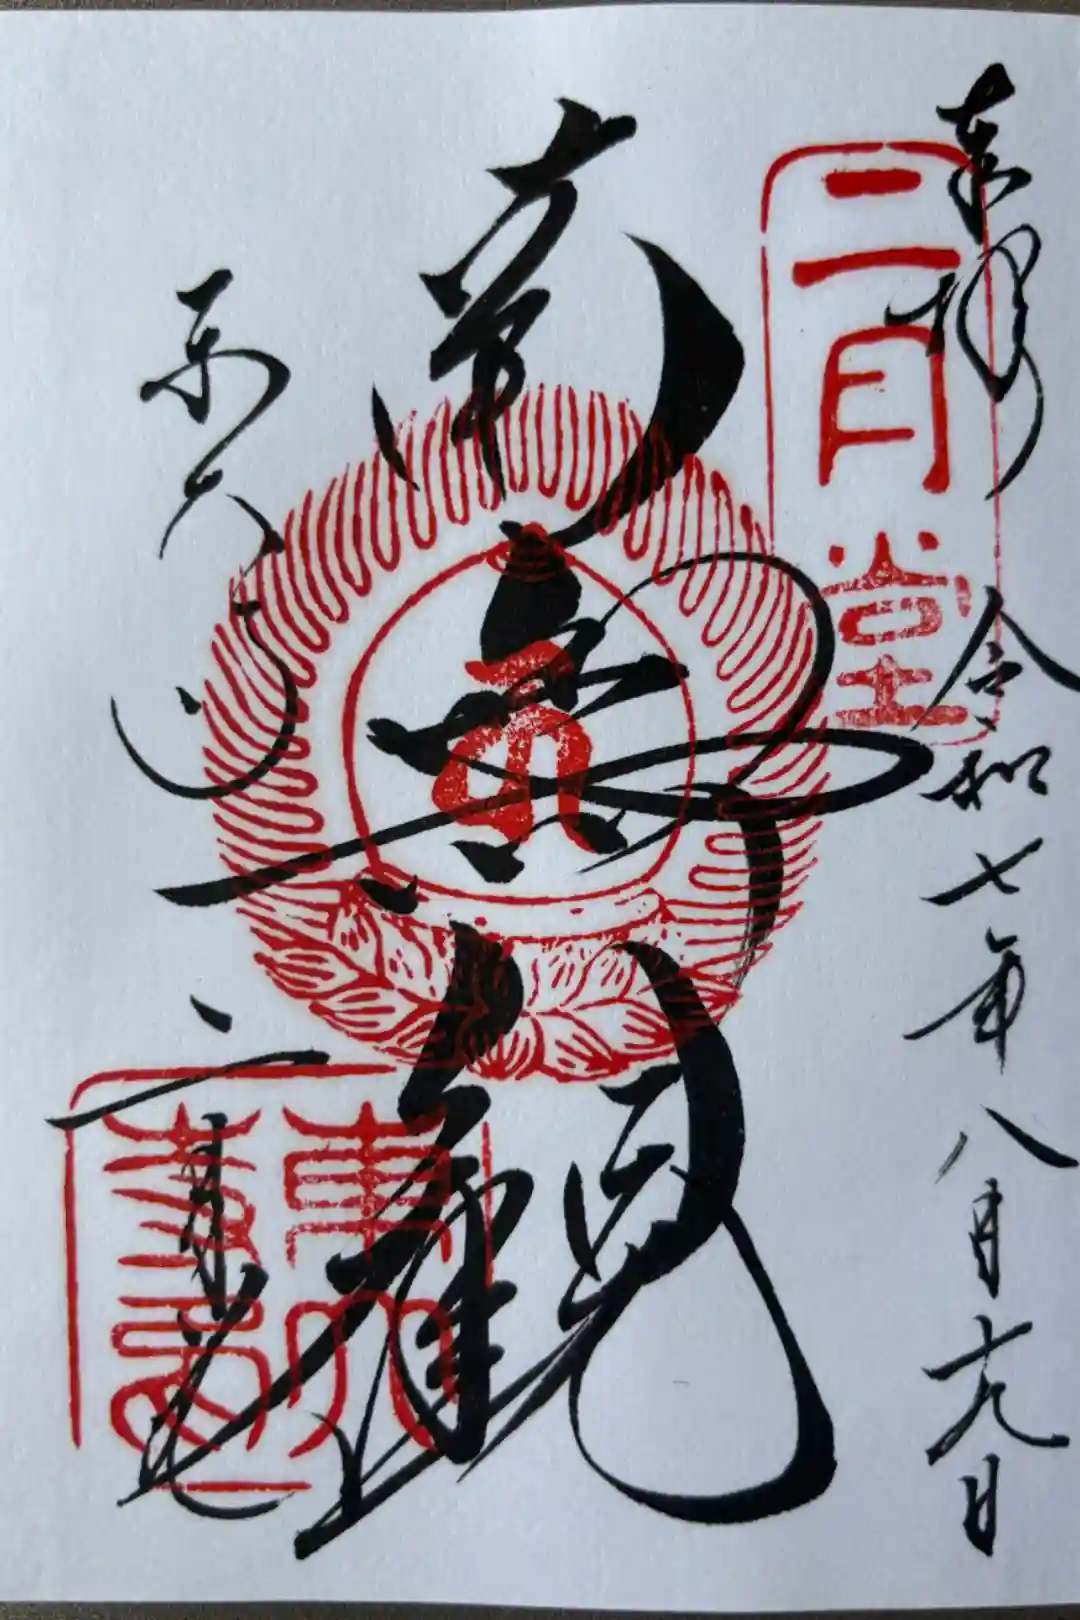 奉拝
令和七年八月十九日
二月堂
南無観
東大寺
二月堂